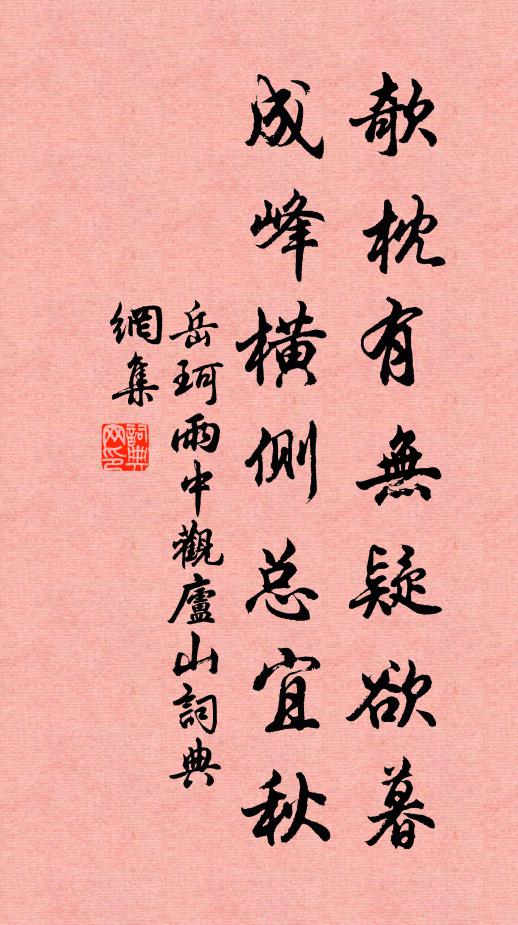 欹枕有無疑欲暮
成峰橫側总宜秋
岳珂雨中觀廬山詞典
網集
詞典網印